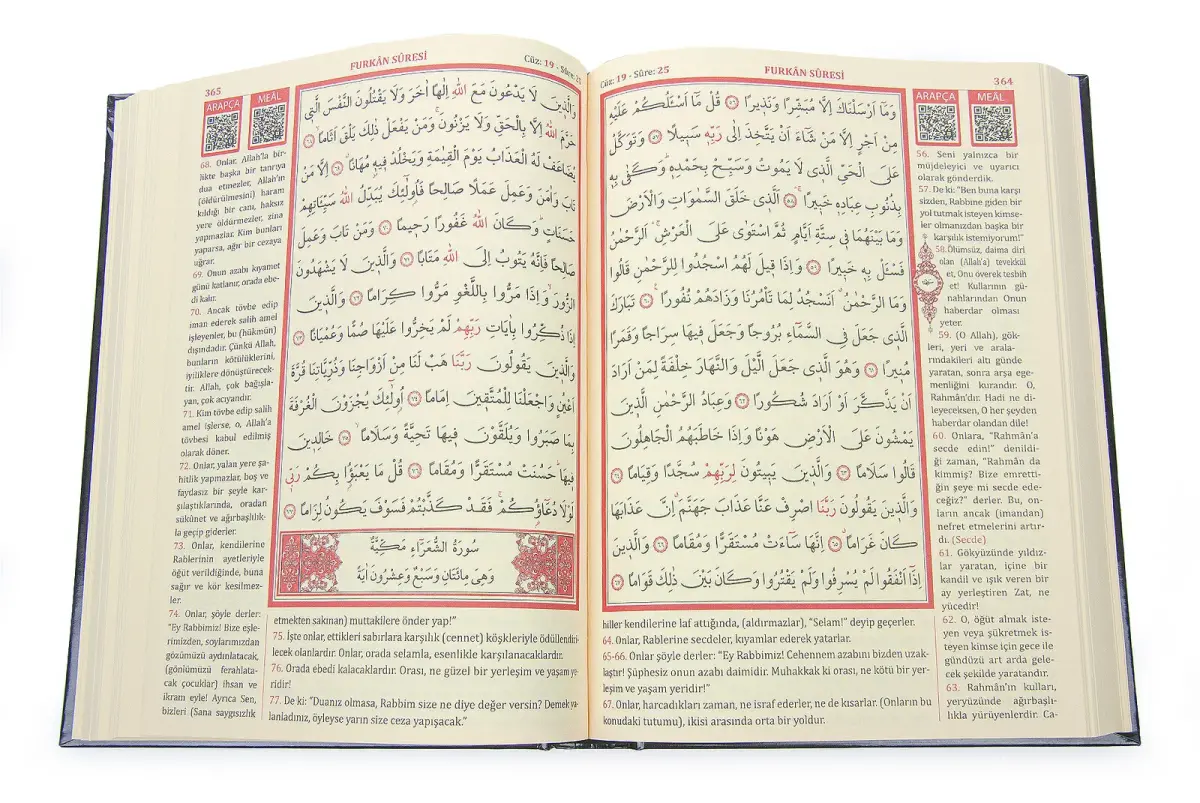 Cüz: 19 - Sûre: 25
FURKÂN SÛRESİ
364
وَمَٓا اَرْسَلْنَاكَ اِلَّا مُبَشِّرًا وَنَذٖيرًا ﴿٥٦﴾ قُلْ مَٓا اَسْـَٔلُكُمْ عَلَيْهِ
مِنْ اَجْرٍ اِلَّا مَنْ شَٓاءَ اَنْ يَتَّخِذَ اِلٰى رَبِّهٖ سَبٖيلًا ﴿٥٧﴾ وَتَوَكَّلْ
عَلَى الْحَيِّ الَّذٖى لَا يَمُوتُ وَسَبِّحْ بِحَمْدِهٖ وَكَفٰى بِهٖ
بِذُنُوبِ عِبَادِهٖ خَبٖيرًا ﴿٥٨﴾ اَلَّذٖى خَلَقَ السَّمٰوَاتِ وَالْاَرْضَ
وَمَا بَيْنَهُمَا فٖى سِتَّةِ اَيَّامٍ ثُمَّ اسْتَوٰى عَلَى الْعَرْشِ اَلرَّحْمٰنُ
فَسْـَٔلْ بِهٖ خَبٖيرًا ﴿٥٩﴾ وَاِذَا قٖيلَ لَهُمُ اسْجُدُوا لِلرَّحْمٰنِ قَالُوا
وَمَا الرَّحْمٰنُ اَنَسْجُدُ لِمَا تَاْمُرُنَا وَزَادَهُمْ نُفُورًا ﴿٦٠﴾ تَبَارَكَ
الَّذٖى جَعَلَ فِى السَّمَٓاءِ بُرُوجًا وَجَعَلَ فٖيهَا سِرَاجًا وَقَمَرًا
مُنٖيرًا ﴿٦١﴾ وَهُوَ الَّذٖى جَعَلَ الَّيْلَ وَالنَّهَارَ خِلْفَةً لِمَنْ اَرَادَ
اَنْ يَذَّكَّرَ اَوْ اَرَادَ شُكُورًا ﴿٦٢﴾ وَعِبَادُ الرَّحْمٰنِ الَّذٖينَ
يَمْشُونَ عَلَى الْاَرْضِ هَوْنًا وَاِذَا خَاطَبَهُمُ الْجَاهِلُونَ
قَالُوا سَلَامًا ﴿٦٣﴾ وَالَّذٖينَ يَبٖيتُونَ لِرَبِّهِمْ سُجَّدًا وَقِيَامًا ﴿٦٤﴾
وَالَّذٖينَ يَقُولُونَ رَبَّنَا اصْرِفْ عَنَّا عَذَابَ جَهَنَّمَ اِنَّ عَذَابَهَا
كَانَ غَرَامًا ﴿٦٥﴾ اِنَّهَا سَٓاءَتْ مُسْتَقَرًّا وَمُقَامًا ﴿٦٦﴾ وَالَّذٖينَ
اِذَٓا اَنْفَقُوا لَمْ يُسْرِفُوا وَلَمْ يَقْتُرُوا وَكَانَ بَيْنَ ذٰلِكَ قَوَامًا ﴿٦٧﴾
ARAPÇA
MEÂL
56. Seni yalnızca bir
müjdeleyici ve uyarıcı
olarak gönderdik.
57. De ki: "Ben buna karşı
sizden, Rabbine giden bir
yol tutmak isteyen kimse-
ler olmanızdan başka bir
karşılık istemiyorum!"
58. Ölümsüz, daima diri
olan (Allah'a) tevekkül
et, Onu överek tesbih
et! Kullarının gü-
nahlarından Onun
haberdar olması
yeter.
59. (O Allah), gök-
leri, yeri ve arala-
rındakileri altı günde
yaratan, sonra arşa ege-
menliğini kurandır. O,
Rahmân'dır. Hadi ne di-
leyeceksen, O her şeyden
haberdar olandan dile!
60. Onlara, "Rahmân'a
secde edin!" denildi-
ği zaman, "Rahmân da
kimmiş? Bize emretti-
ğin şeye mi secde ede-
ceğiz?" derler. Bu, on-
ların ancak (imandan)
nefret etmelerini artır-
dı. (Secde)
61. Gökyüzünde yıldız-
lar yaratan, içine bir
kandil ve ışık veren bir
ay yerleştiren Zat, ne
yücedir!
62. O, öğüt almak iste-
yen veya şükretmek is-
teyen kimse için gece ile
gündüzü art arda gele-
cek şekilde yaratandır.
63. Rahmân'ın kulları,
yeryüzünde ağırbaşlı-
lıkla yürüyenlerdir. Ca-
hiller kendilerine laf attığında, (aldırmazlar), "Selam!" deyip geçerler.
64. Onlar, Rablerine secdeler, kıyamlar ederek yatarlar.
65-66. Onlar şöyle derler: "Ey Rabbimiz! Cehennem azabını bizden uzak-
laştır! Şüphesiz onun azabı daimidir. Muhakkak ki orası, ne kötü bir yer-
leşim ve yaşam yeridir!"
67. Onlar, harcadıkları zaman, ne israf ederler, ne de kısarlar. (Onların bu
konudaki tutumu), ikisi arasında orta bir yoldur.
365
FURKÂN SÛRESİ
Cüz: 19 - Sûre: 25
وَالَّذٖينَ لَا يَدْعُونَ مَعَ اللّٰهِ اِلٰهًا اٰخَرَ وَلَا يَقْتُلُونَ النَّفْسَ الَّتٖى
حَرَّمَ اللّٰهُ اِلَّا بِالْحَقِّ وَلَا يَزْنُونَ وَمَنْ يَفْعَلْ ذٰلِكَ يَلْقَ اَثَامًا ﴿٦٨﴾
يُضَاعَفْ لَهُ الْعَذَابُ يَوْمَ الْقِيٰمَةِ وَيَخْلُدْ فٖيهٖ مُهَانًا ﴿٦٩﴾ اِلَّا مَنْ
تَابَ وَاٰمَنَ وَعَمِلَ عَمَلًا صَالِحًا فَاُولٰٓئِكَ يُبَدِّلُ اللّٰهُ سَيِّـَٔاتِهِمْ
حَسَنَاتٍ وَكَانَ اللّٰهُ غَفُورًا رَحٖيمًا ﴿٧٠﴾ وَمَنْ تَابَ وَعَمِلَ
صَالِحًا فَاِنَّهُ يَتُوبُ اِلَى اللّٰهِ مَتَابًا ﴿٧١﴾ وَالَّذٖينَ لَا يَشْهَدُونَ
الزُّورَ وَاِذَا مَرُّوا بِاللَّغْوِ مَرُّوا كِرَامًا ﴿٧٢﴾ وَالَّذٖينَ
اِذَا ذُكِّرُوا بِاٰيَاتِ رَبِّهِمْ لَمْ يَخِرُّوا عَلَيْهَا صُمًّا وَعُمْيَانًا ﴿٧٣﴾
وَالَّذٖينَ يَقُولُونَ رَبَّنَا هَبْ لَنَا مِنْ اَزْوَاجِنَا وَذُرِّيَّاتِنَا قُرَّةَ
اَعْيُنٍ وَاجْعَلْنَا لِلْمُتَّقٖينَ اِمَامًا ﴿٧٤﴾ اُولٰٓئِكَ يُجْزَوْنَ الْغُرْفَةَ
بِمَا صَبَرُوا وَيُلَقَّوْنَ فٖيهَا تَحِيَّةً وَسَلَامًا ﴿٧٥﴾ خَالِدٖينَ
فٖيهَا حَسُنَتْ مُسْتَقَرًّا وَمُقَامًا ﴿٧٦﴾ قُلْ مَا يَعْبَؤُا بِكُمْ رَبّٖى
لَوْلَا دُعَٓاؤُكُمْ فَقَدْ كَذَّبْتُمْ فَسَوْفَ يَكُونُ لِزَامًا ﴿٧٧﴾
سُورَةُ الشُّعَرَٓاءِ مَكِّيَّةٌ
وَهِىَ مِائَتَانِ وَسَبْعٌ وَعِشْرُونَ اٰيَةً
ARAPÇA
MEÂL
68. Onlar, Allah'la bir-
likte başka bir tanrıya
dua etmezler, Allah'ın
(öldürülmesini) haram
kıldığı bir canı, haksız
yere öldürmezler, zina
yapmazlar. Kim bunları
yaparsa, ağır bir cezaya
uğrar.
69. Onun azabı kıyamet
günü katlanır, orada ebe-
di kalır.
70. Ancak tövbe edip
iman ederek salih amel
işleyenler, bu (hükmün)
dışındadır. Çünkü Allah,
bunların kötülüklerini,
iyiliklere dönüştürecek-
tir. Allah, çok bağışla-
yan, çok acıyandır.
71. Kim tövbe edip salih
amel işlerse, o, Allah'a
tövbesi kabul edilmiş
olarak döner.
72. Onlar, yalan yere şa-
hitlik yapmazlar, boş ve
faydasız bir şeyle kar-
şılaştıklarında, oradan
sükûnet ve ağırbaşlılık-
la geçip giderler.
73. Onlar, kendilerine
Rablerinin ayetleriyle
öğüt verildiğinde, buna
sağır ve kör kesilmez-
ler.
74. Onlar, şöyle derler:
"Ey Rabbimiz! Bize eşle-
rimizden, soylarımızdan
gözümüzü aydınlatacak,
(gönlümüzü ferahlata-
cak çocuklar) ihsan ve
ikram eyle! Ayrıca Sen,
bizleri (Sana saygısızlık
etmekten sakınan) muttakilere önder yap!"
75. İşte onlar, ettikleri sabırlara karşılık (cennet) köşkleriyle ödüllendiri-
lecek olanlardır. Onlar, orada selamla, esenlikle karşılanacaklardır.
76. Orada ebedi kalacaklardır. Orası, ne güzel bir yerleşim ve yaşam ye-
ridir!
77. De ki: "Duanız olmasa, Rabbim size ne diye değer versin? Demek ya-
lanladınız, öyleyse yarın size ceza yapışacak."